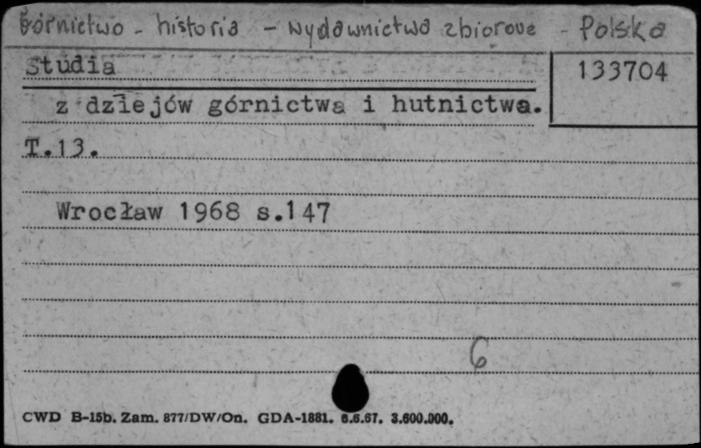 Górnictwo - historia - wydawnictwa zbiorowe - Polska
Studia
133704
z dziejów górnictwa i hutnictwa.
T.13.
Wrocław 1968 s.147
6
CWD B-15b. Zam. 877/DW/On. GDA-1881. 6.6.67. 3.600.000.